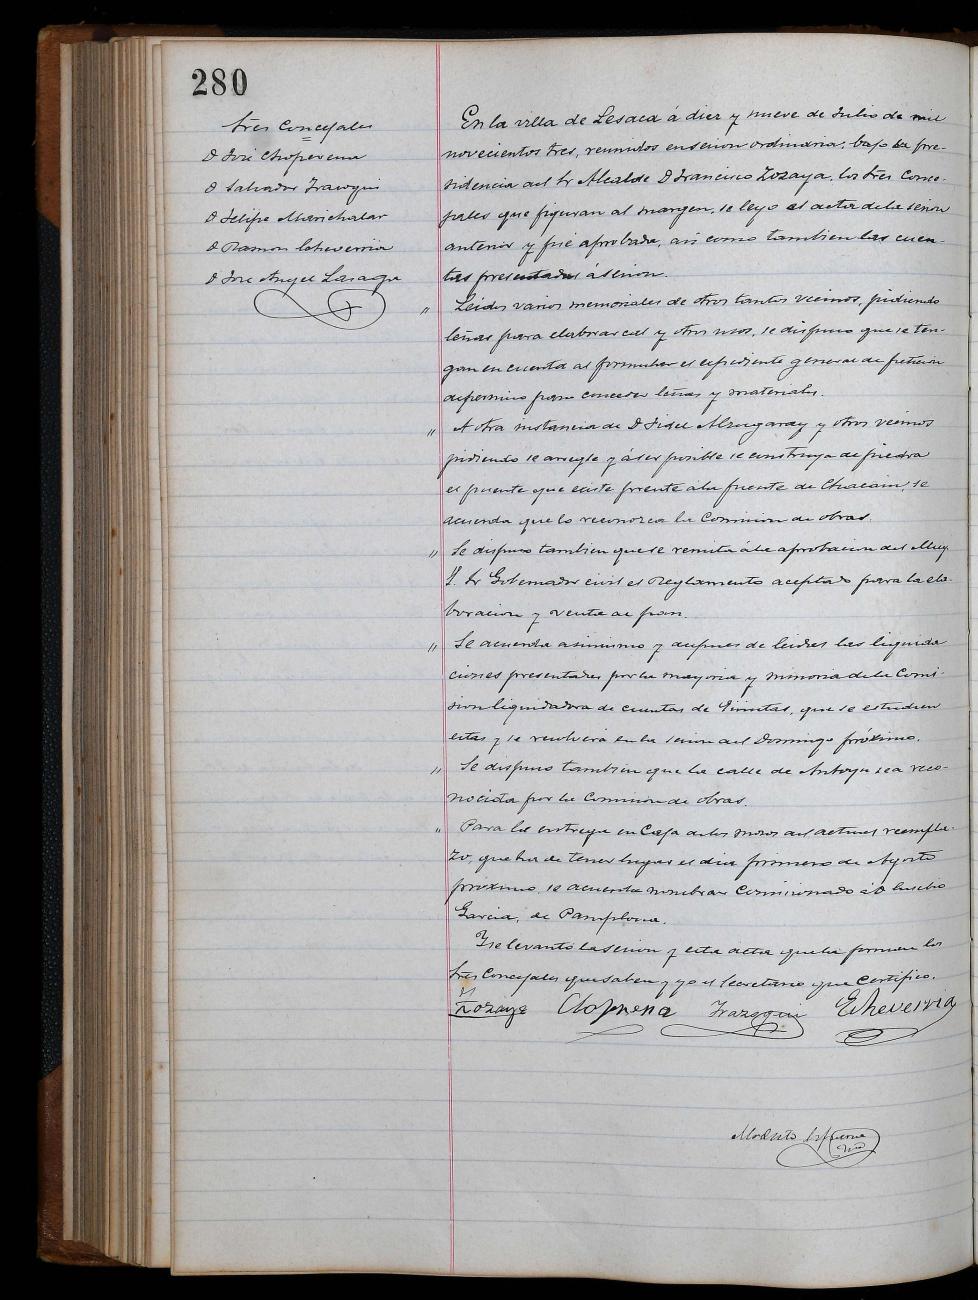 280
Sres Concejales
D José Choperena
D Salvador Irazoqui
D Felipe Marichalar
D Ramon Echeverria
D Jose Angel Lasaga
En la villa de Lesaca á diez y nueve de Julio de mil
novecientos tres, reunidos en sesion ordinaria, bajo la pre-
sidencia del Sr Alcalde D Francisco Zozaya, los Sres Conce-
jales que figuran al margen, se leyo el acta de la sesion
anterior y fué aprobada, asi como tambien las cuen-
tas presentadas á sesion.
" Leidos varios memoriales de otros tantos vecinos, pidiendo
leñas para elaborar cal y otros usos, se dispuso que se ten-
gan en cuenta al formular el espediente general de peticion
de permiso para conceder leñas y materiales.
" A otra instancia de D Fidel Alzugaray y otros vecinos
pidiendo se arregle y á ser posible se construya de piedra
el puente que existe frente á la fuente de, se
acuerda que lo reconozca la Comision de obras.
" Se dispuso tambien que se remita á la aprobacion del Muy
Y. Sr Gobernador civil el Reglamento aceptado para la ela-
boracion y venta de pan.
" Se acuerda asimismo y despues de leidas las liquida
ciones presentadas por la mayoria y minoria de la Comi-
sion liquidadora de cuentas de Quintas, que se estudien
estas y se resolverá en la sesion del Domingo próximo.
" Se dispuso tambien que la calle de sea reco-
nocida por la Comision de obras.
" Para la entrega en Caja de los mozos del actual reempla-
zo, que ha de tener lugar el dia primero de Agosto
proximo, se acuerda nombrar Comisionado á D Eusebio
Garcia, de Pamplona.
Y se levantó la sesion y esta acta que la firman los
Sres Concejales que saben y yo el Secretario que Certifico.
Zozaya Choprena Irazoqui Echeverria
Modesto